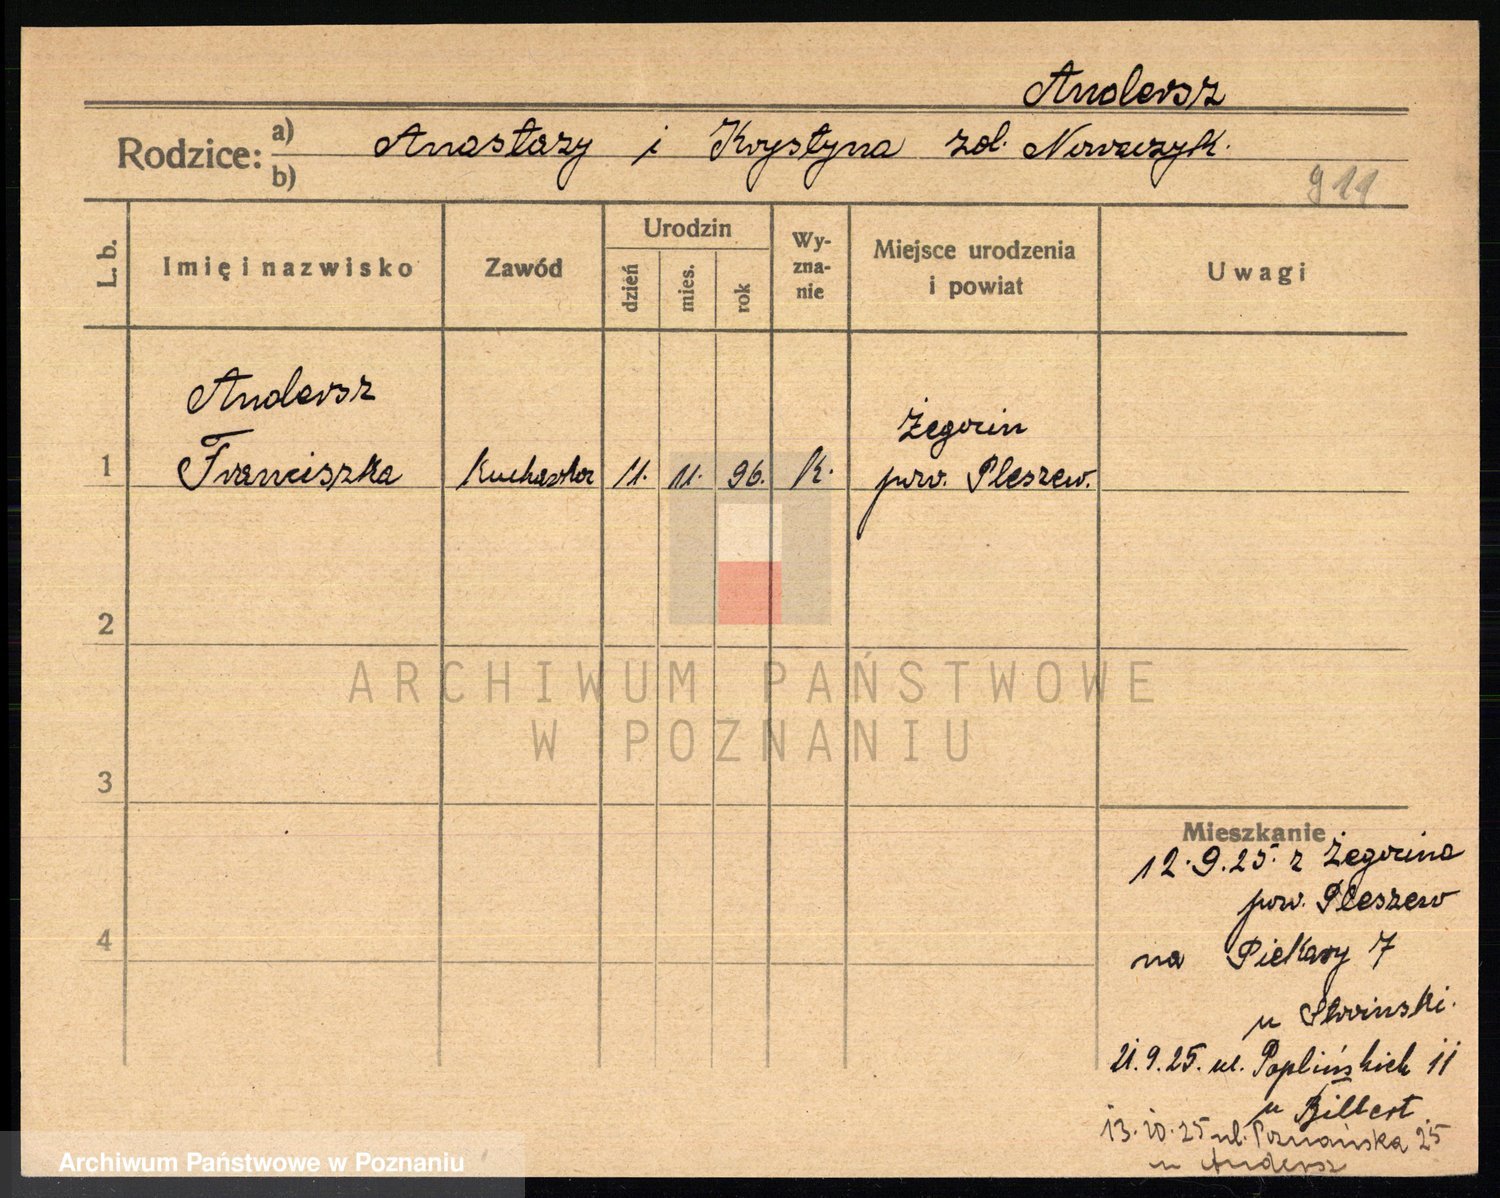 Andersz
Rodzice: a) b) Anastazy i Krystyna zd. Nowaczyk.
911
L. b.
Imię i nazwisko
Zawód
Urodzin
dzień
mies.
rok
Wy-
zna-
nie
Miejsce urodzenia
i powiat
Uwagi
Andersz
Żegocin
1 Franciszka Kucharka 11. 11. 96. K. pow. Pleszew.
2
3
4
Mieszkanie
12.9.25. z Żegocina
pow. Pleszew
na Piekary 7
u
21.9.25. ul. Poplińskich 11
u Bilbert
13.10.25 ul. Poznańska 25
u Andersz
ARCHIWUM PAŃSTWOWE
W POZNANIU
Archiwum Państwowe w Poznaniu